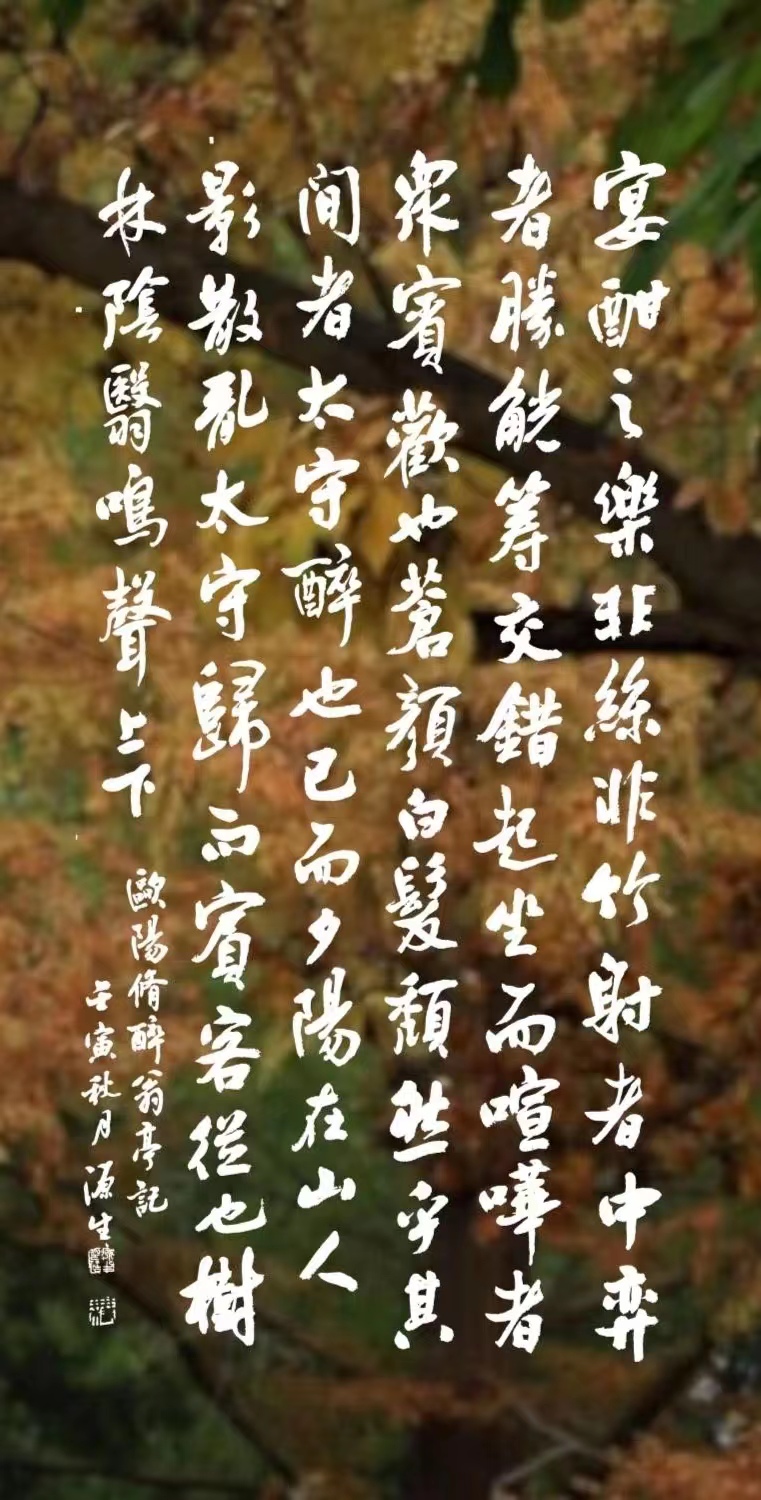 宴酣之樂非絲非竹射者中弈
者勝觥筹交錯起坐而喧嘩者
衆賓歡也蒼顏白髮頹然乎其
间者太守醉也已而夕陽在山人
影散亂太守歸而賓客從也樹
林陰翳鳴聲上下
歐陽脩醉翁亭記
壬寅秋月源生